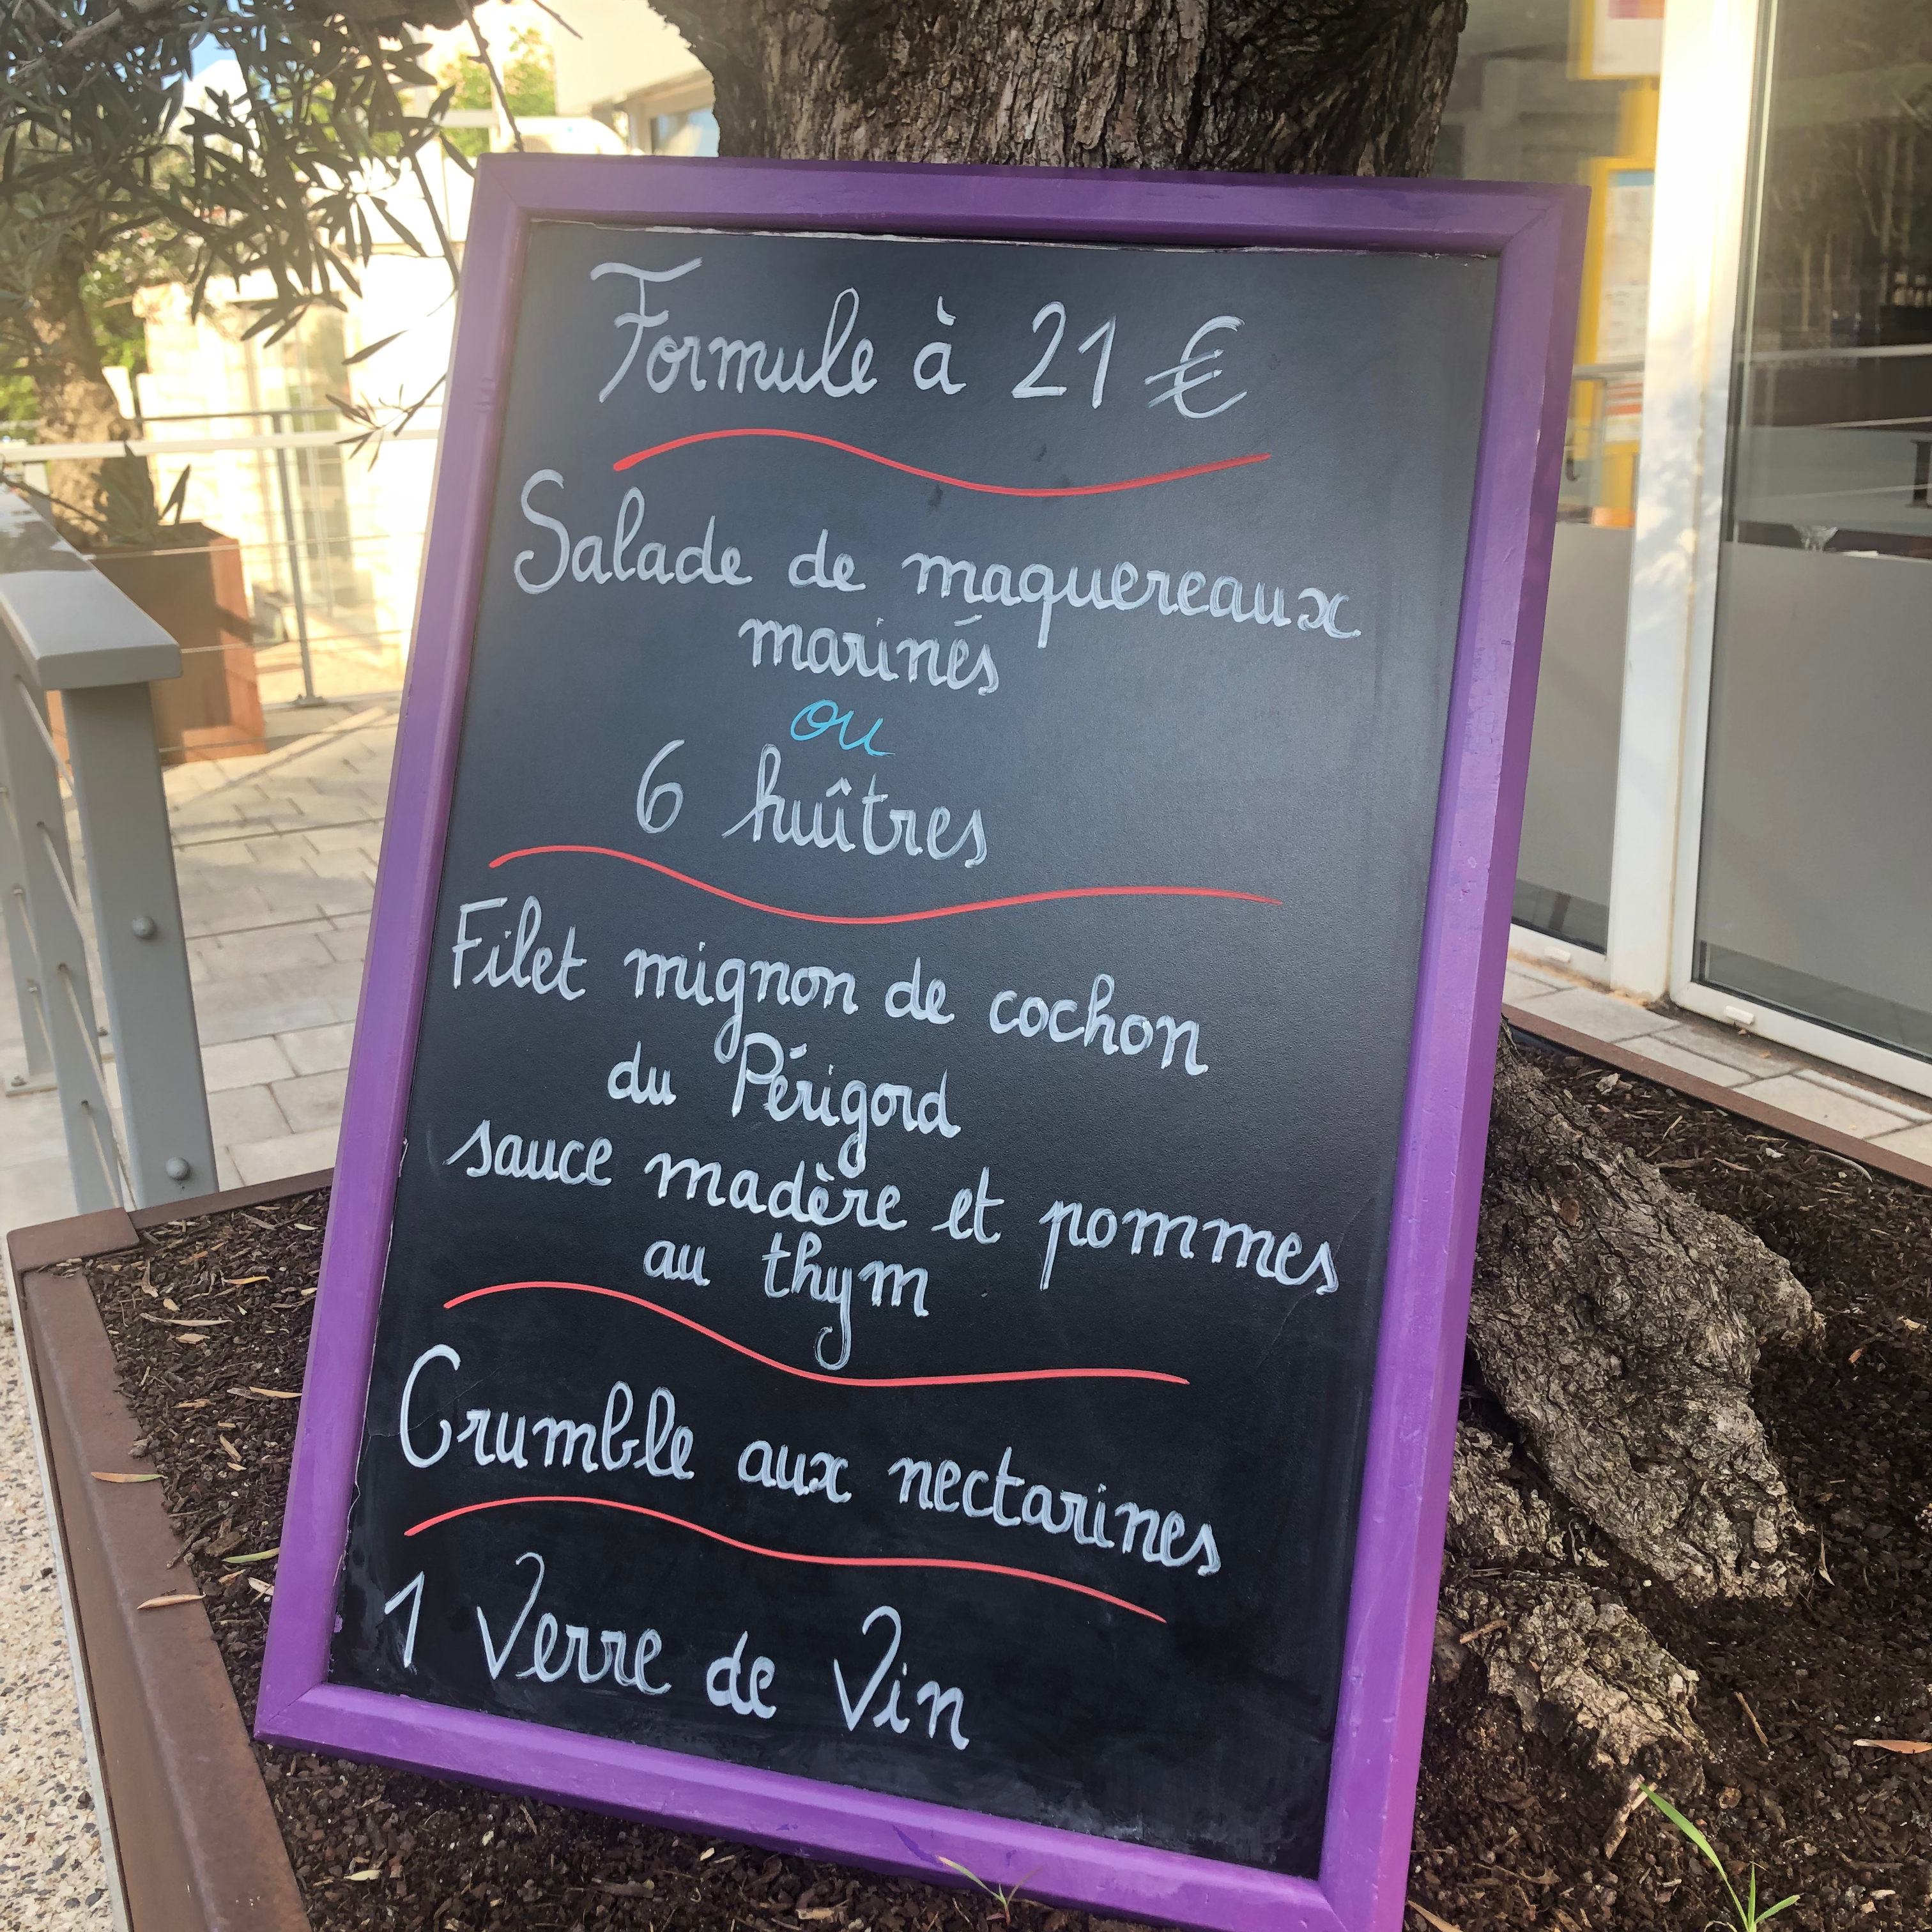 Formule à 21 €
Salade de maquereaux
marinés
ou
6 huîtres
Filet mignon de cochon
du Périgord
sauce madère et pommes
au thym
Crumble aux nectarines
1 Verre de Vin